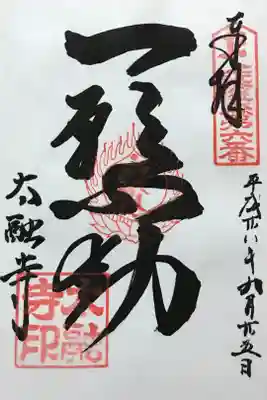 奉拝
六番
平成廿八年九月廿五日
一願不動
太融寺
太融寺印